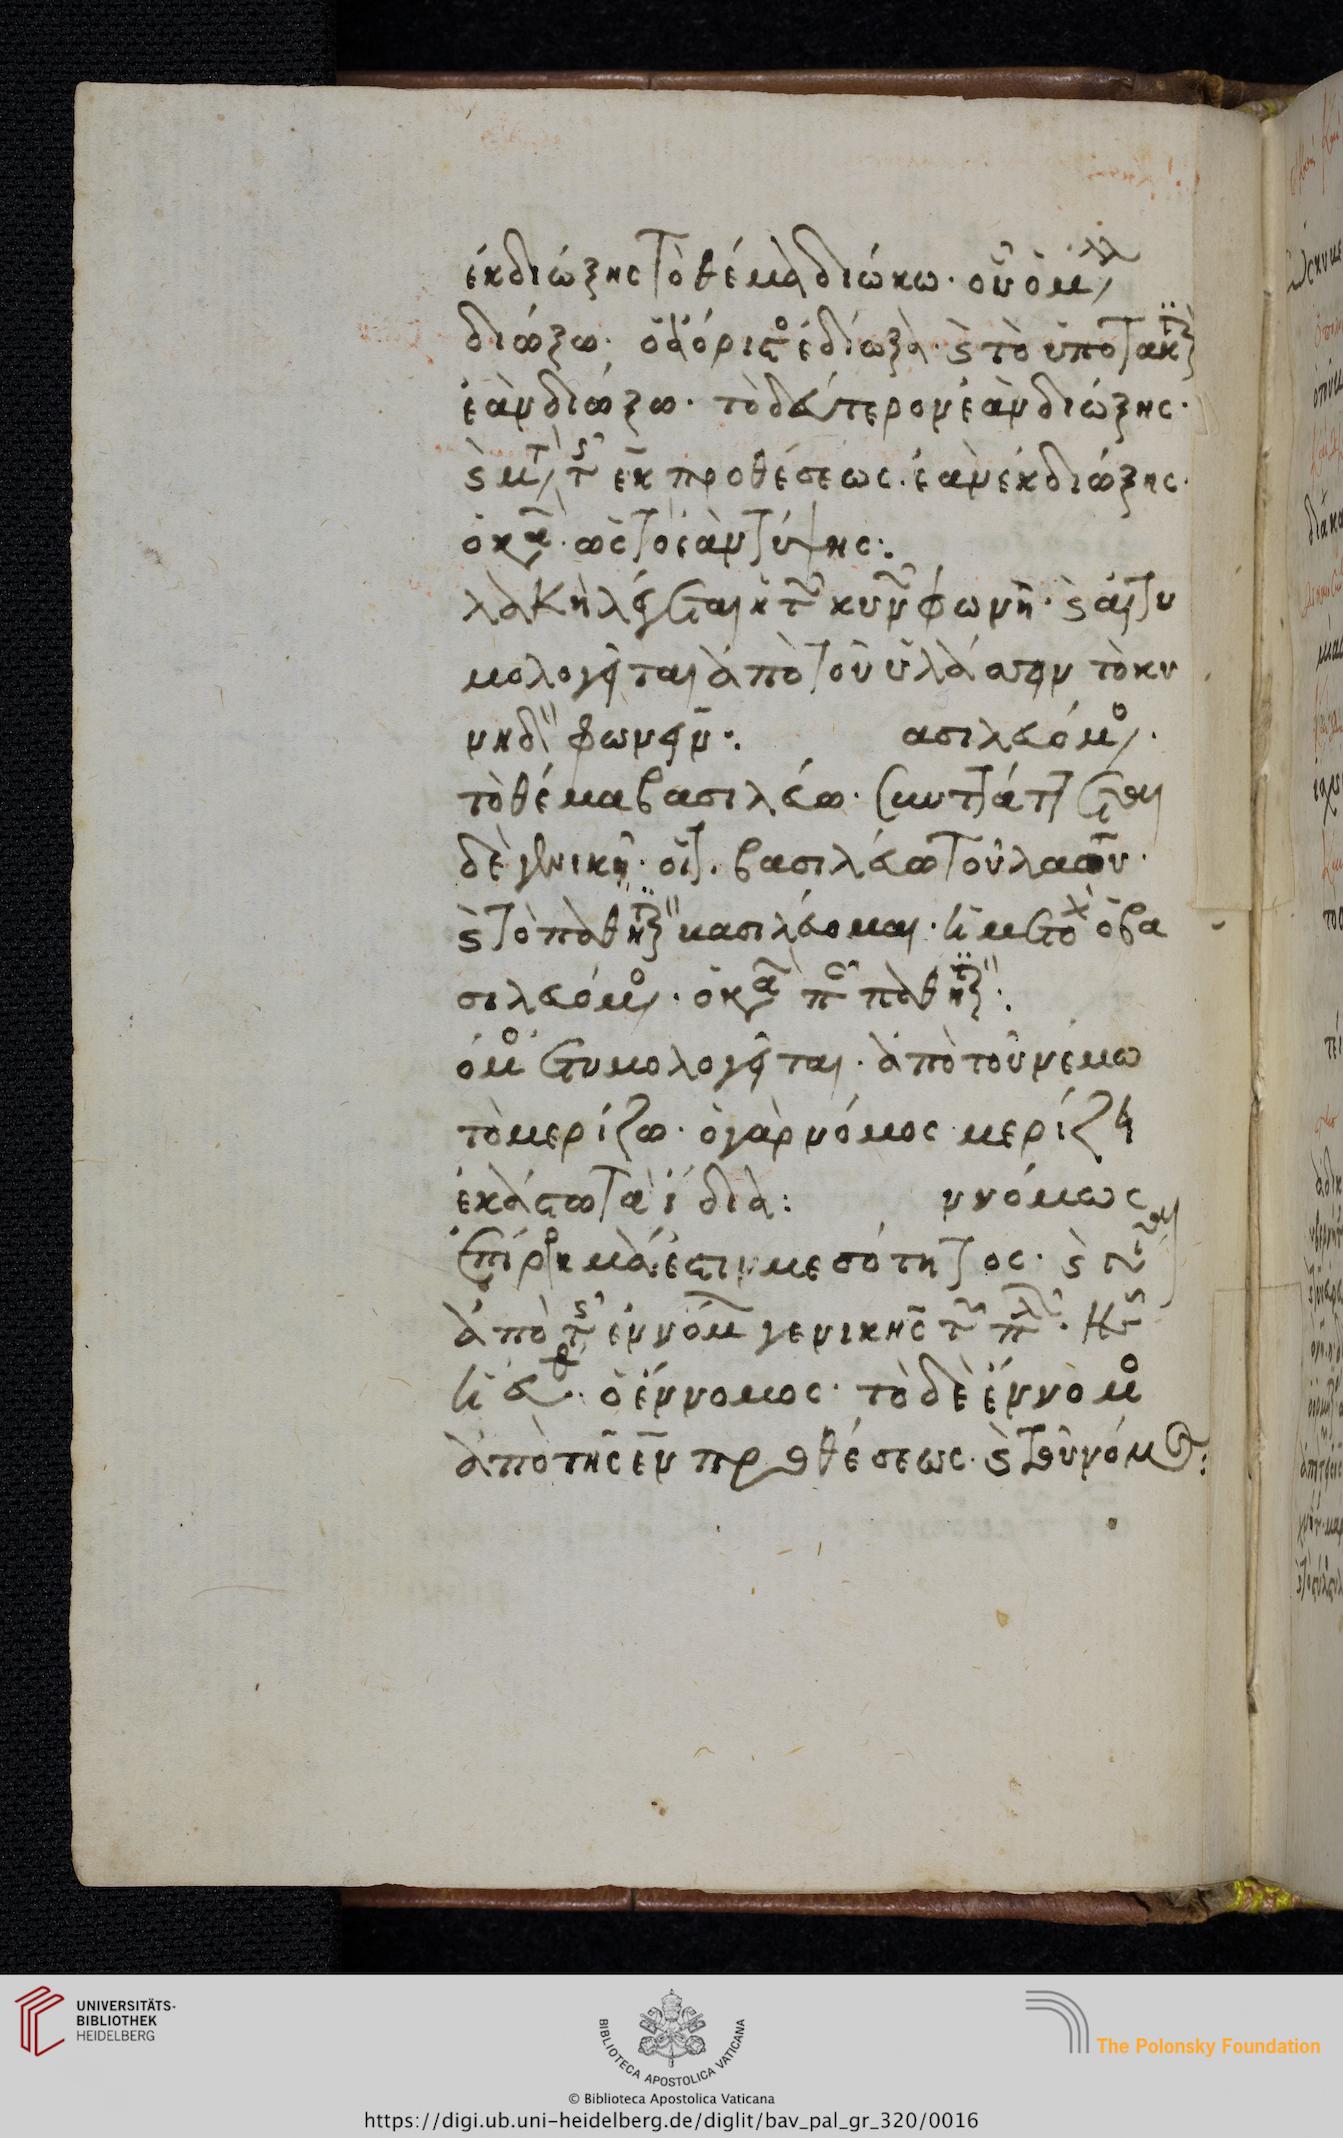 ἐκδιώξης τὸ θέμα διώκω· οὗ ὁ μ
διώξω· ὁ ἀόριστος ἐδίωξα· καὶ τὸ ὑποτακτ
ἐὰν διώξω· τὸ δεύτερον ἐὰν διώξης·
καὶ μτ τῆς ἐκ προθέσεως· ἐὰν ἐκδιώξης·
ὁ κα· ὡς τὸ ἐὰν τύψης:
λακὴ λέγεται ἡ τῶν κυνῶν φωνή· καὶ ἐτυ
μολογεῖται ἀπὸ τοῦ ὑλάσσειν τὸ κυ
νηδὸν φωνεῖν: ασιλευόμ
τὸ θέμα βασιλεύω· συντάττεται
δὲ γενικῇ· οἷον· βασιλεύω τοῦ λαοῦ·
καὶ τὸ παθητ βασιλεύομαι· ἡ μετοχ ὁ βα
σιλευόμ· ὁ κα παθητ:
όμ ἐτυμολογεῖται· ἀπὸ τοῦ νέμω
τὸ μερίζω· ὁ γὰρ νόμος μερίζει
ἑκάστω τὰ ἴδια: ννόμως
ἐπίρρημα ἐστιν μεσότητος· καὶ
ἀπὸ τῆς ἐννόμ γενικῆς τῶν π·
ἡ εὐθ· ὁ ἔννομος· τὸ δὲ ἔννομ
ἀπὸ τῆς ἐν προθέσεως· καὶ τοῦ νόμος:
UNIVERSITÄTS-
BIBLIOTHEK
HEIDELBERG
BIBLIOTECA APOSTOLICA VATICANA
The Polonsky Foundation
© Biblioteca Apostolica Vaticana
https://digi.ub.uni-heidelberg.de/diglit/bav_pal_gr_320/0016